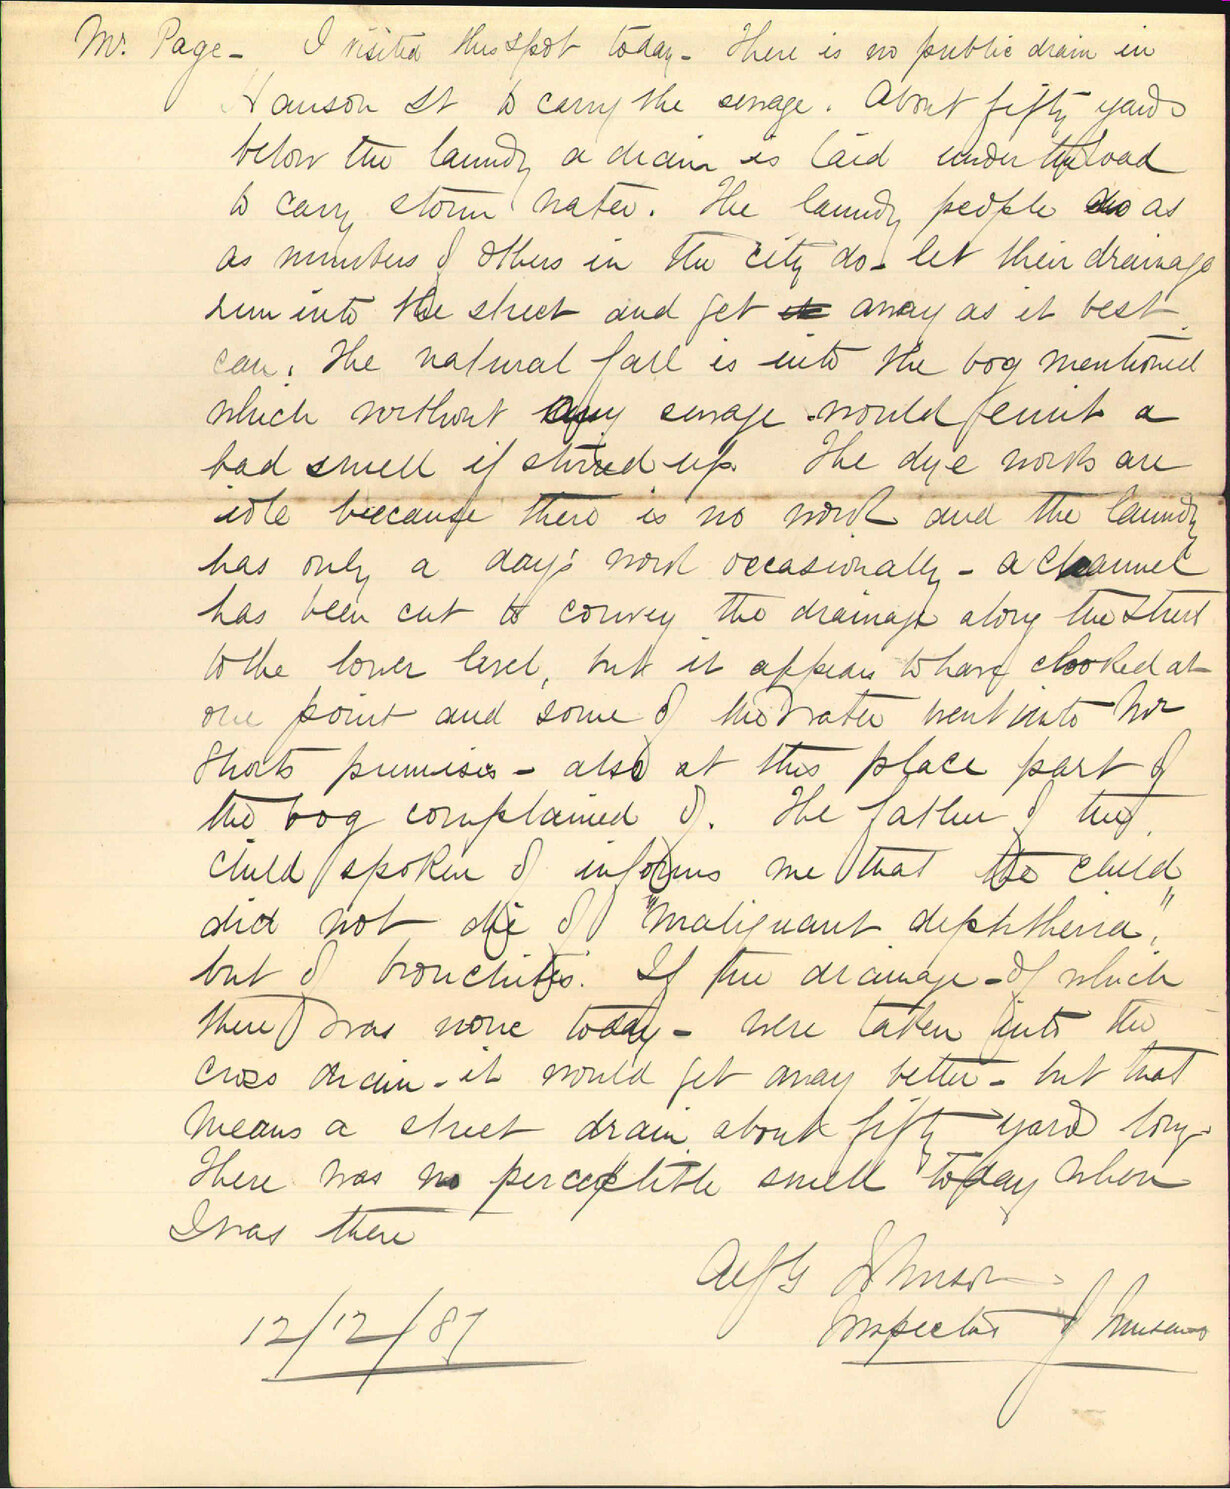 Mr. Page - I visited this spot today - There is no public drain in
Hanson St to carry the sewage. About fifty yards
below the laundry a drain is laid under the road
to carry storm water. The laundry people do as
as numbers of others in the city do - let their drainage
run into the street and get it away as it best
can. The natural fall is into the bog mentioned
which without any sewage would emit a
bad smell if stirred up. The dye works are
idle because there is no work and the laundry
has only a day's work occasionally - a channel
has been cut to convey the drainage along the street
to the lower level, but it appears to have choked at
one point and some of the water went into Mr
Shorts premises - also at this place part of
the bog complained of. The father of the
child spoken of informs me that the child
did not die of "malignant diphtheria"
but of bronchitis. If the drainage - of which
there was none today - were taken into the
cross drain - it would get away better - but that
means a street drain about fifty yards long.
There was no perceptible smell today when
I was there
Alf G Johnson
Inspector of Nuisances
12/12/87